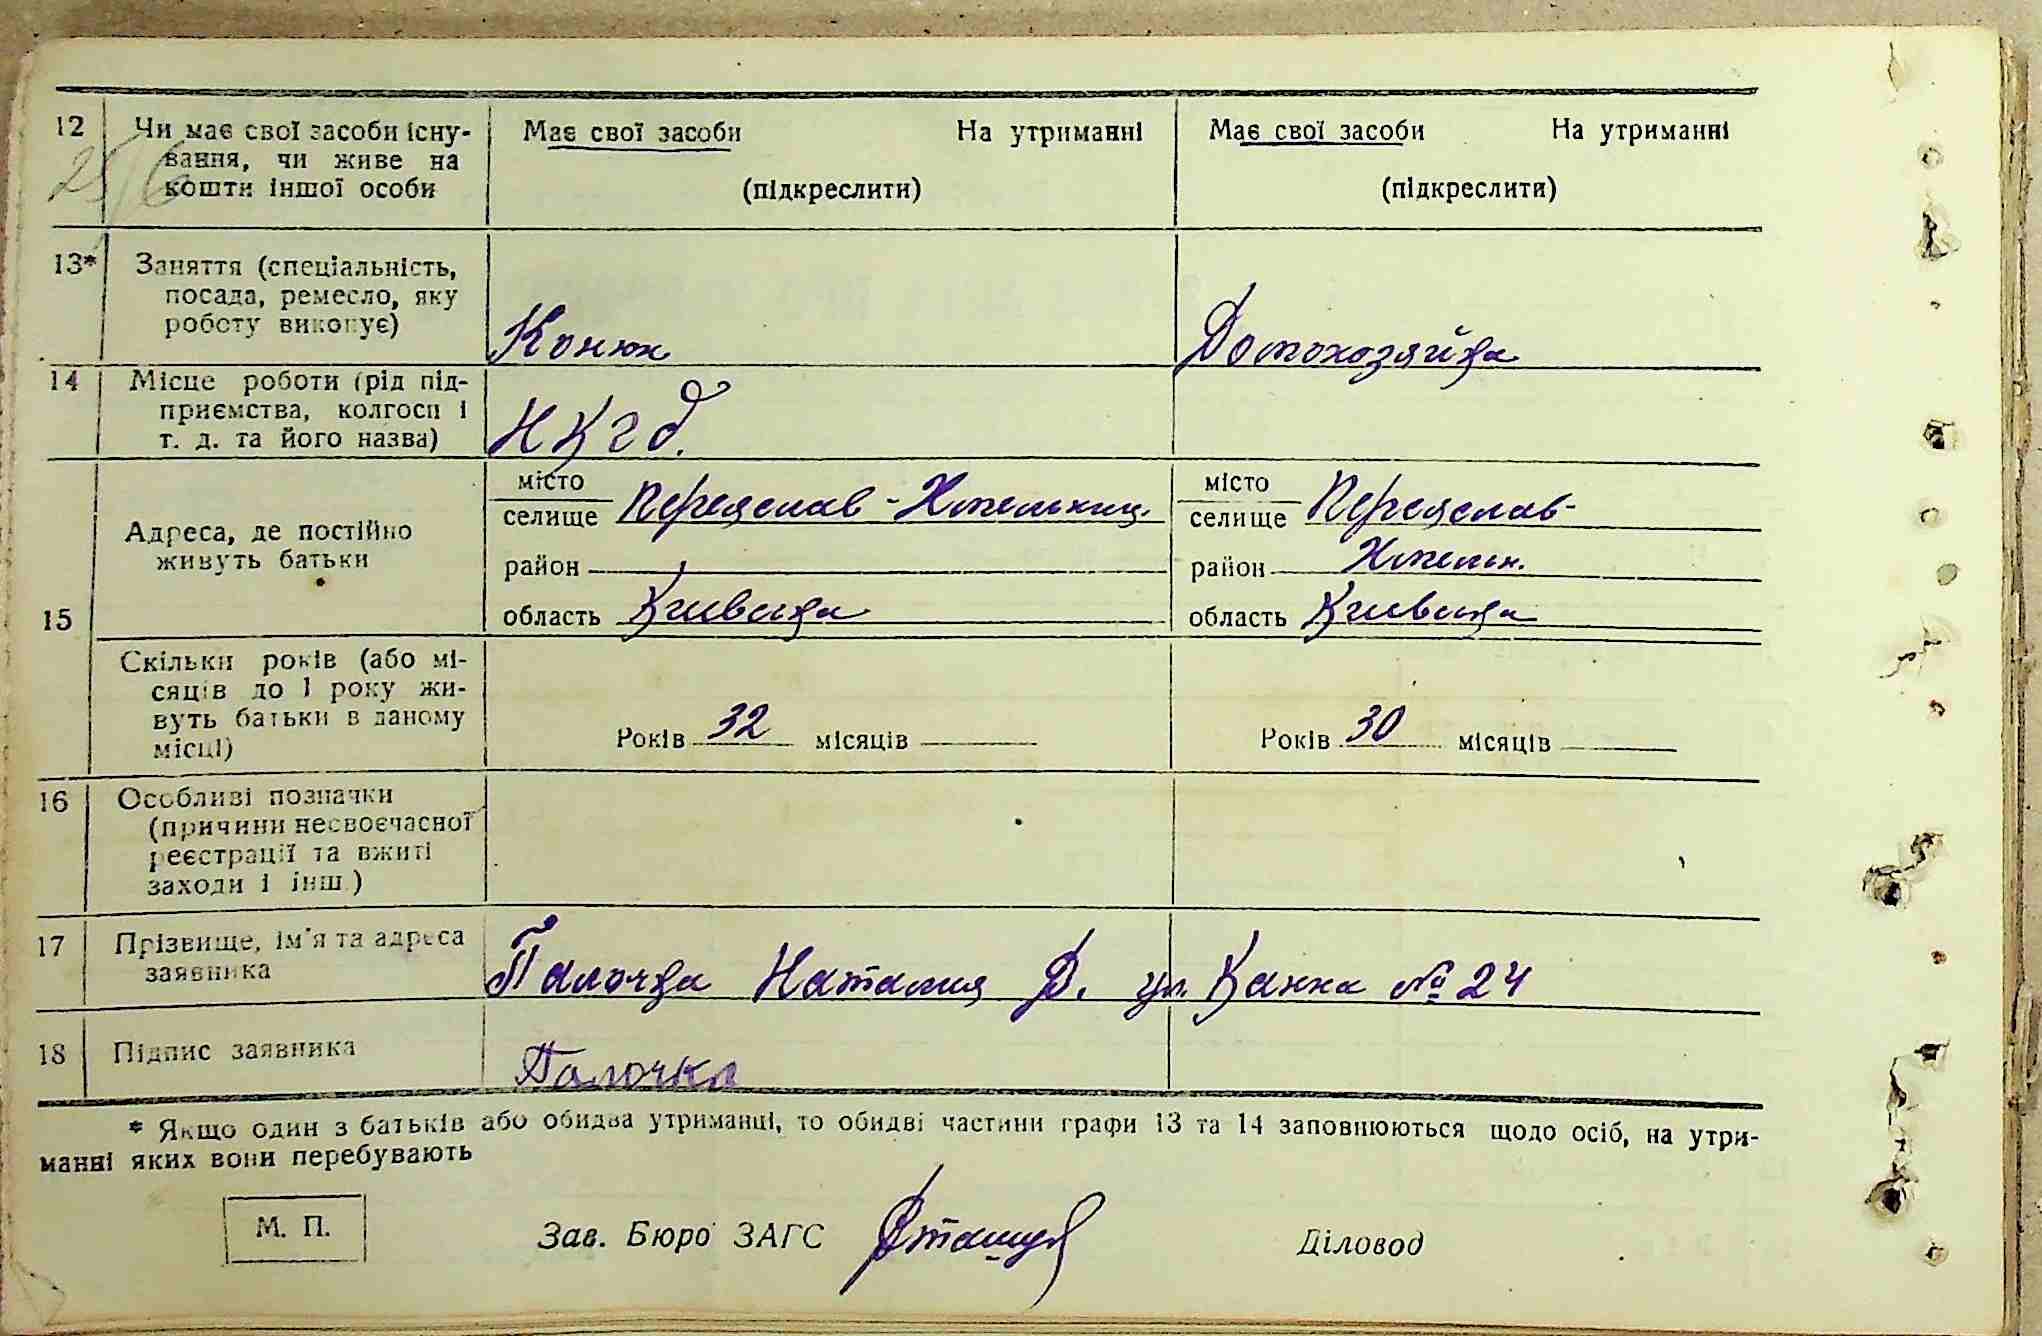 12 Чи має свої засоби існу- Має свої засоби На утриманні Має свої засоби На утриманні
вання, чи живе на
кошти іншої особи (підкреслити) (підкреслити)
25/6
13* Заняття (спеціальність,
посада, ремесло, яку
роботу виконує) Конюх Домохозяйка
14 Місце роботи (рід під-
приємства, колгосп і
т. д. та його назва) НКГб.
15 Адреса, де постійно
живуть батьки
місто
селище Переяслав-Хмельниц. місто
селище Переяслав-
район район Хмельн.
область Киевская область Киевская
Скільки років (або мі-
сяців до 1 року жи-
вуть батьки в даному
місці) Років 32 місяців Років 30 місяців
16 Особливі позначки
(причини несвоєчасної
реєстрації та вжиті
заходи і інш.)
17 Прізвище, ім'я та адреса
заявника Палочка Наталия Д. ул. Канна № 24
18 Підпис заявника Палочка
* Якщо один з батьків або обидва утриманці, то обидві частини графи 13 та 14 заповнюються щодо осіб, на утри-
манні яких вони перебувають
М. П. Зав. Бюро ЗАГС Діловод